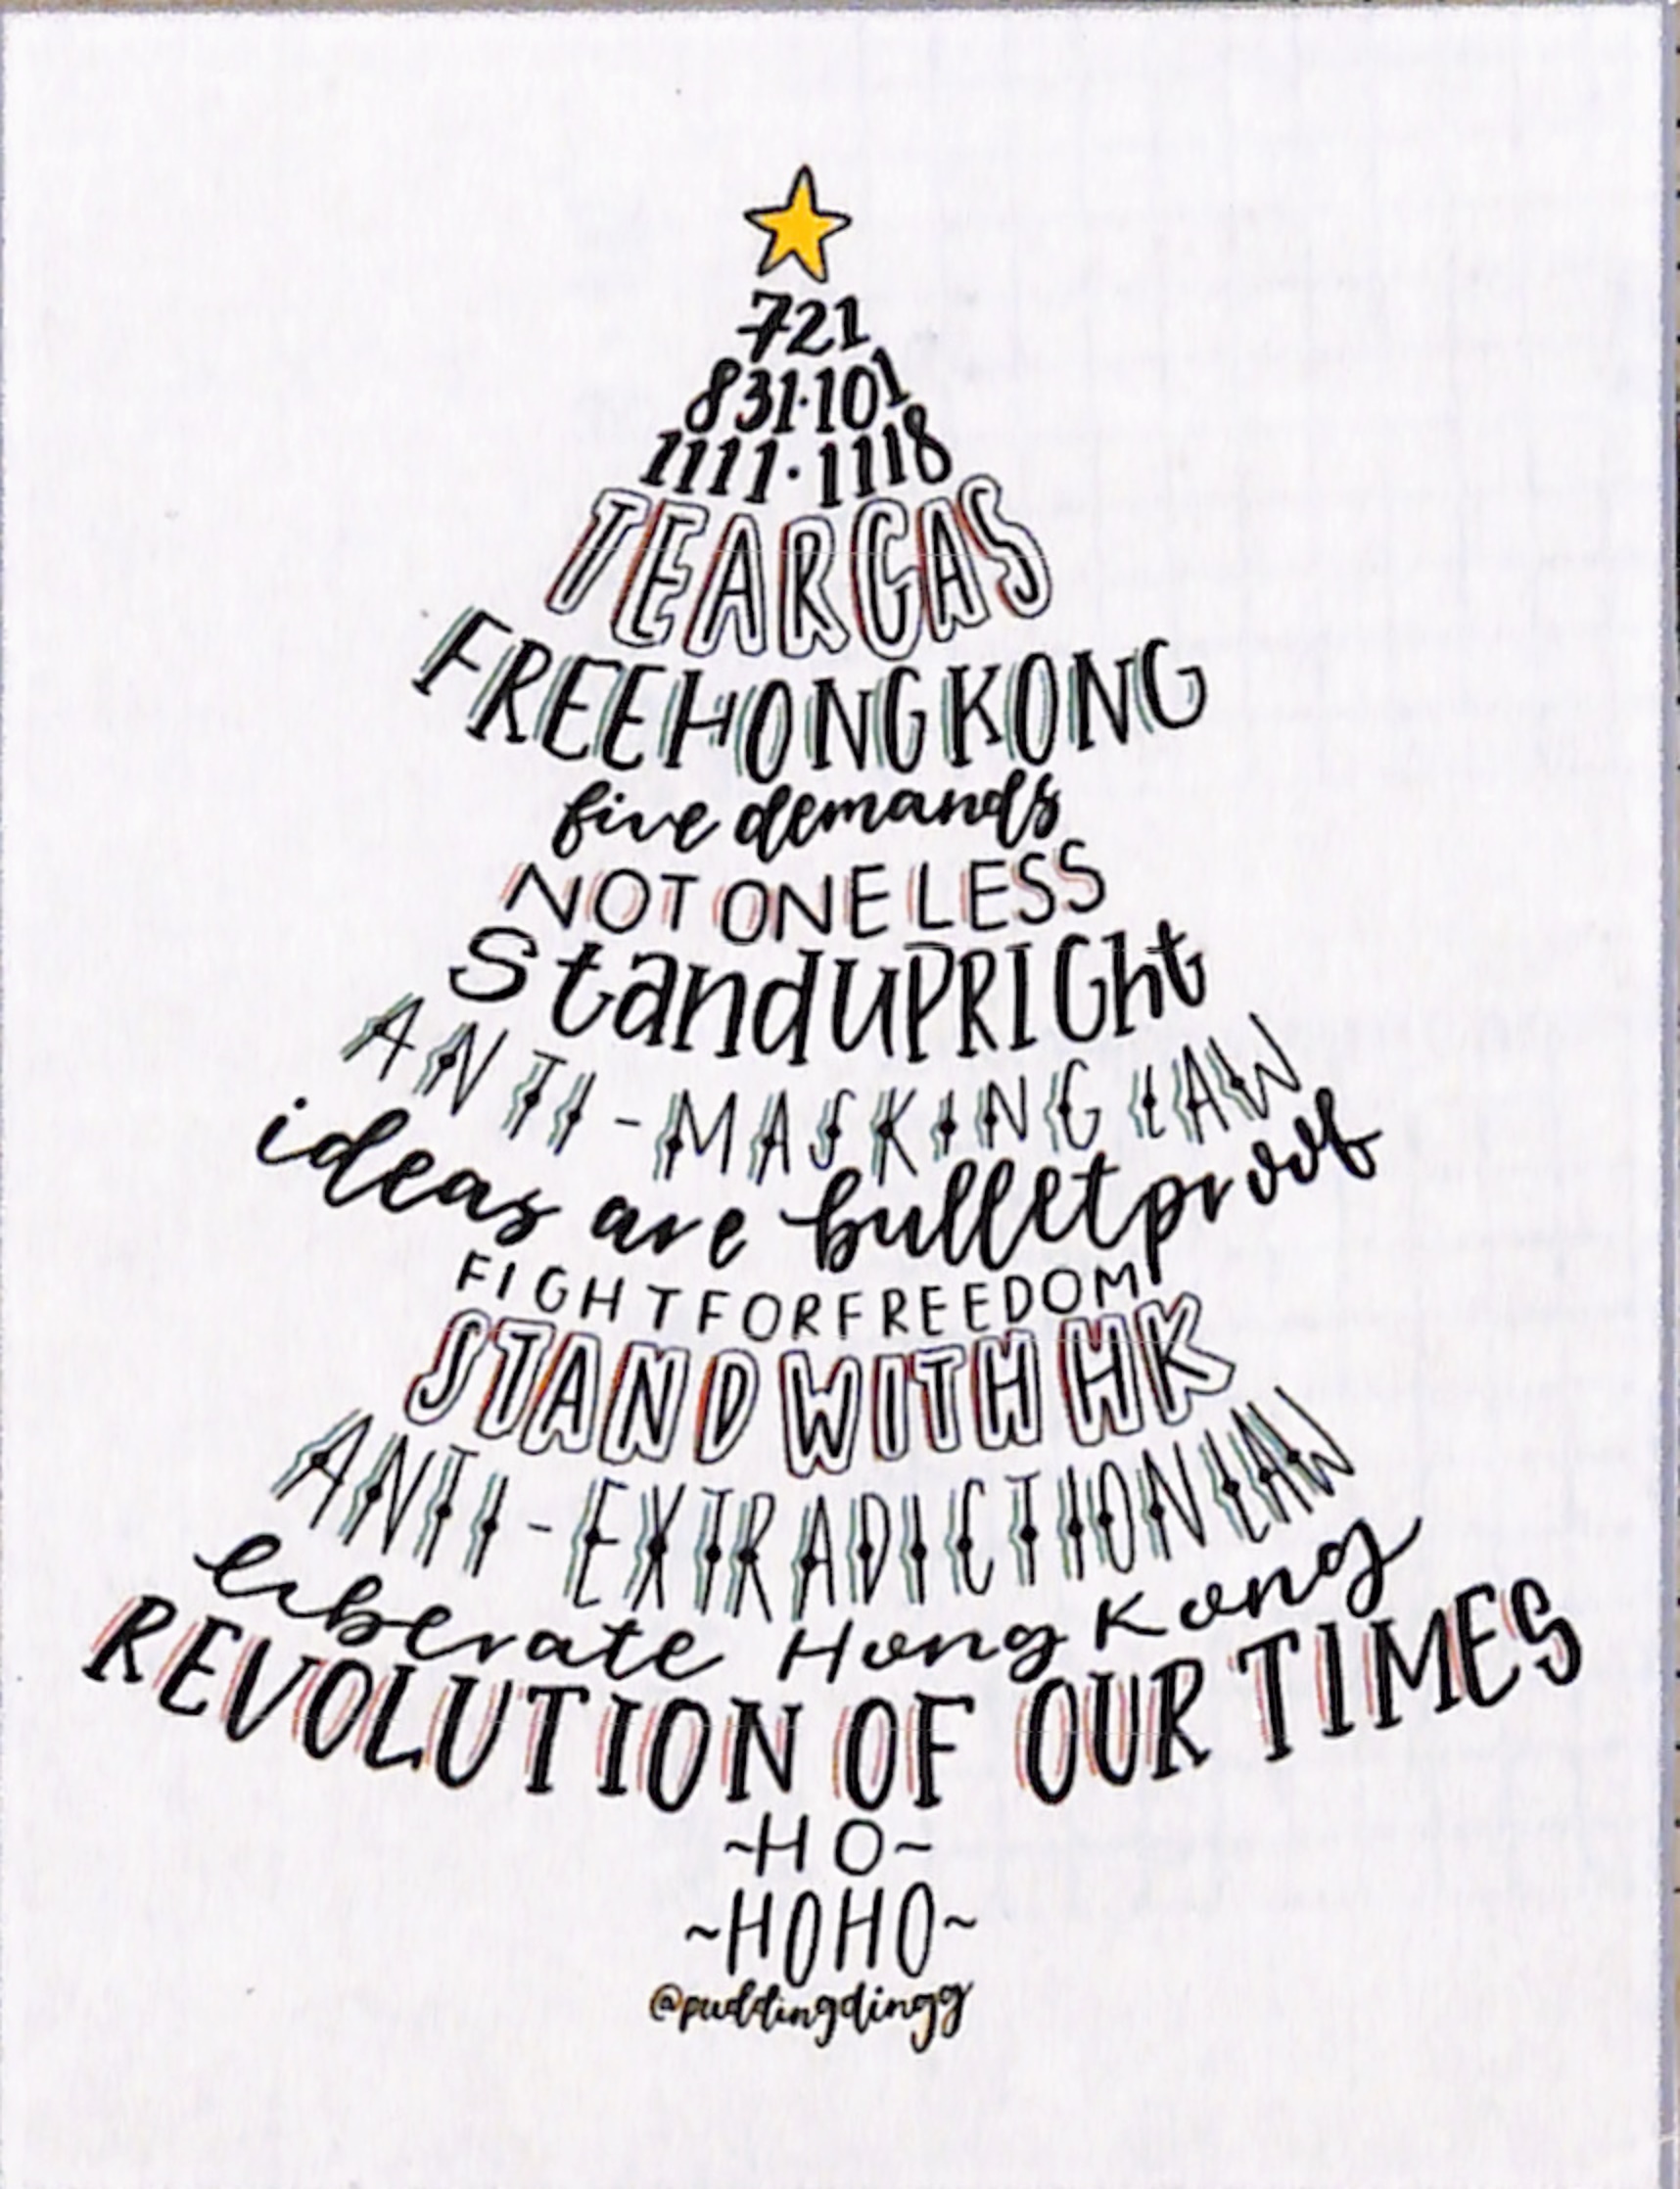 721
831·101
1111·1118
TEARGAS
FREEHONGKONG
five demands
NOT ONE LESS
StandUPRIGht
ANTI-MASKING LAW
ideas are bulletproof
FIGHTFORFREEDOM
STAND WITH HK
ANTI-EXTRADICTION LAW
liberate Hong Kong
REVOLUTION OF OUR TIMES
~HO~
~HOHO~
@puddingdingg